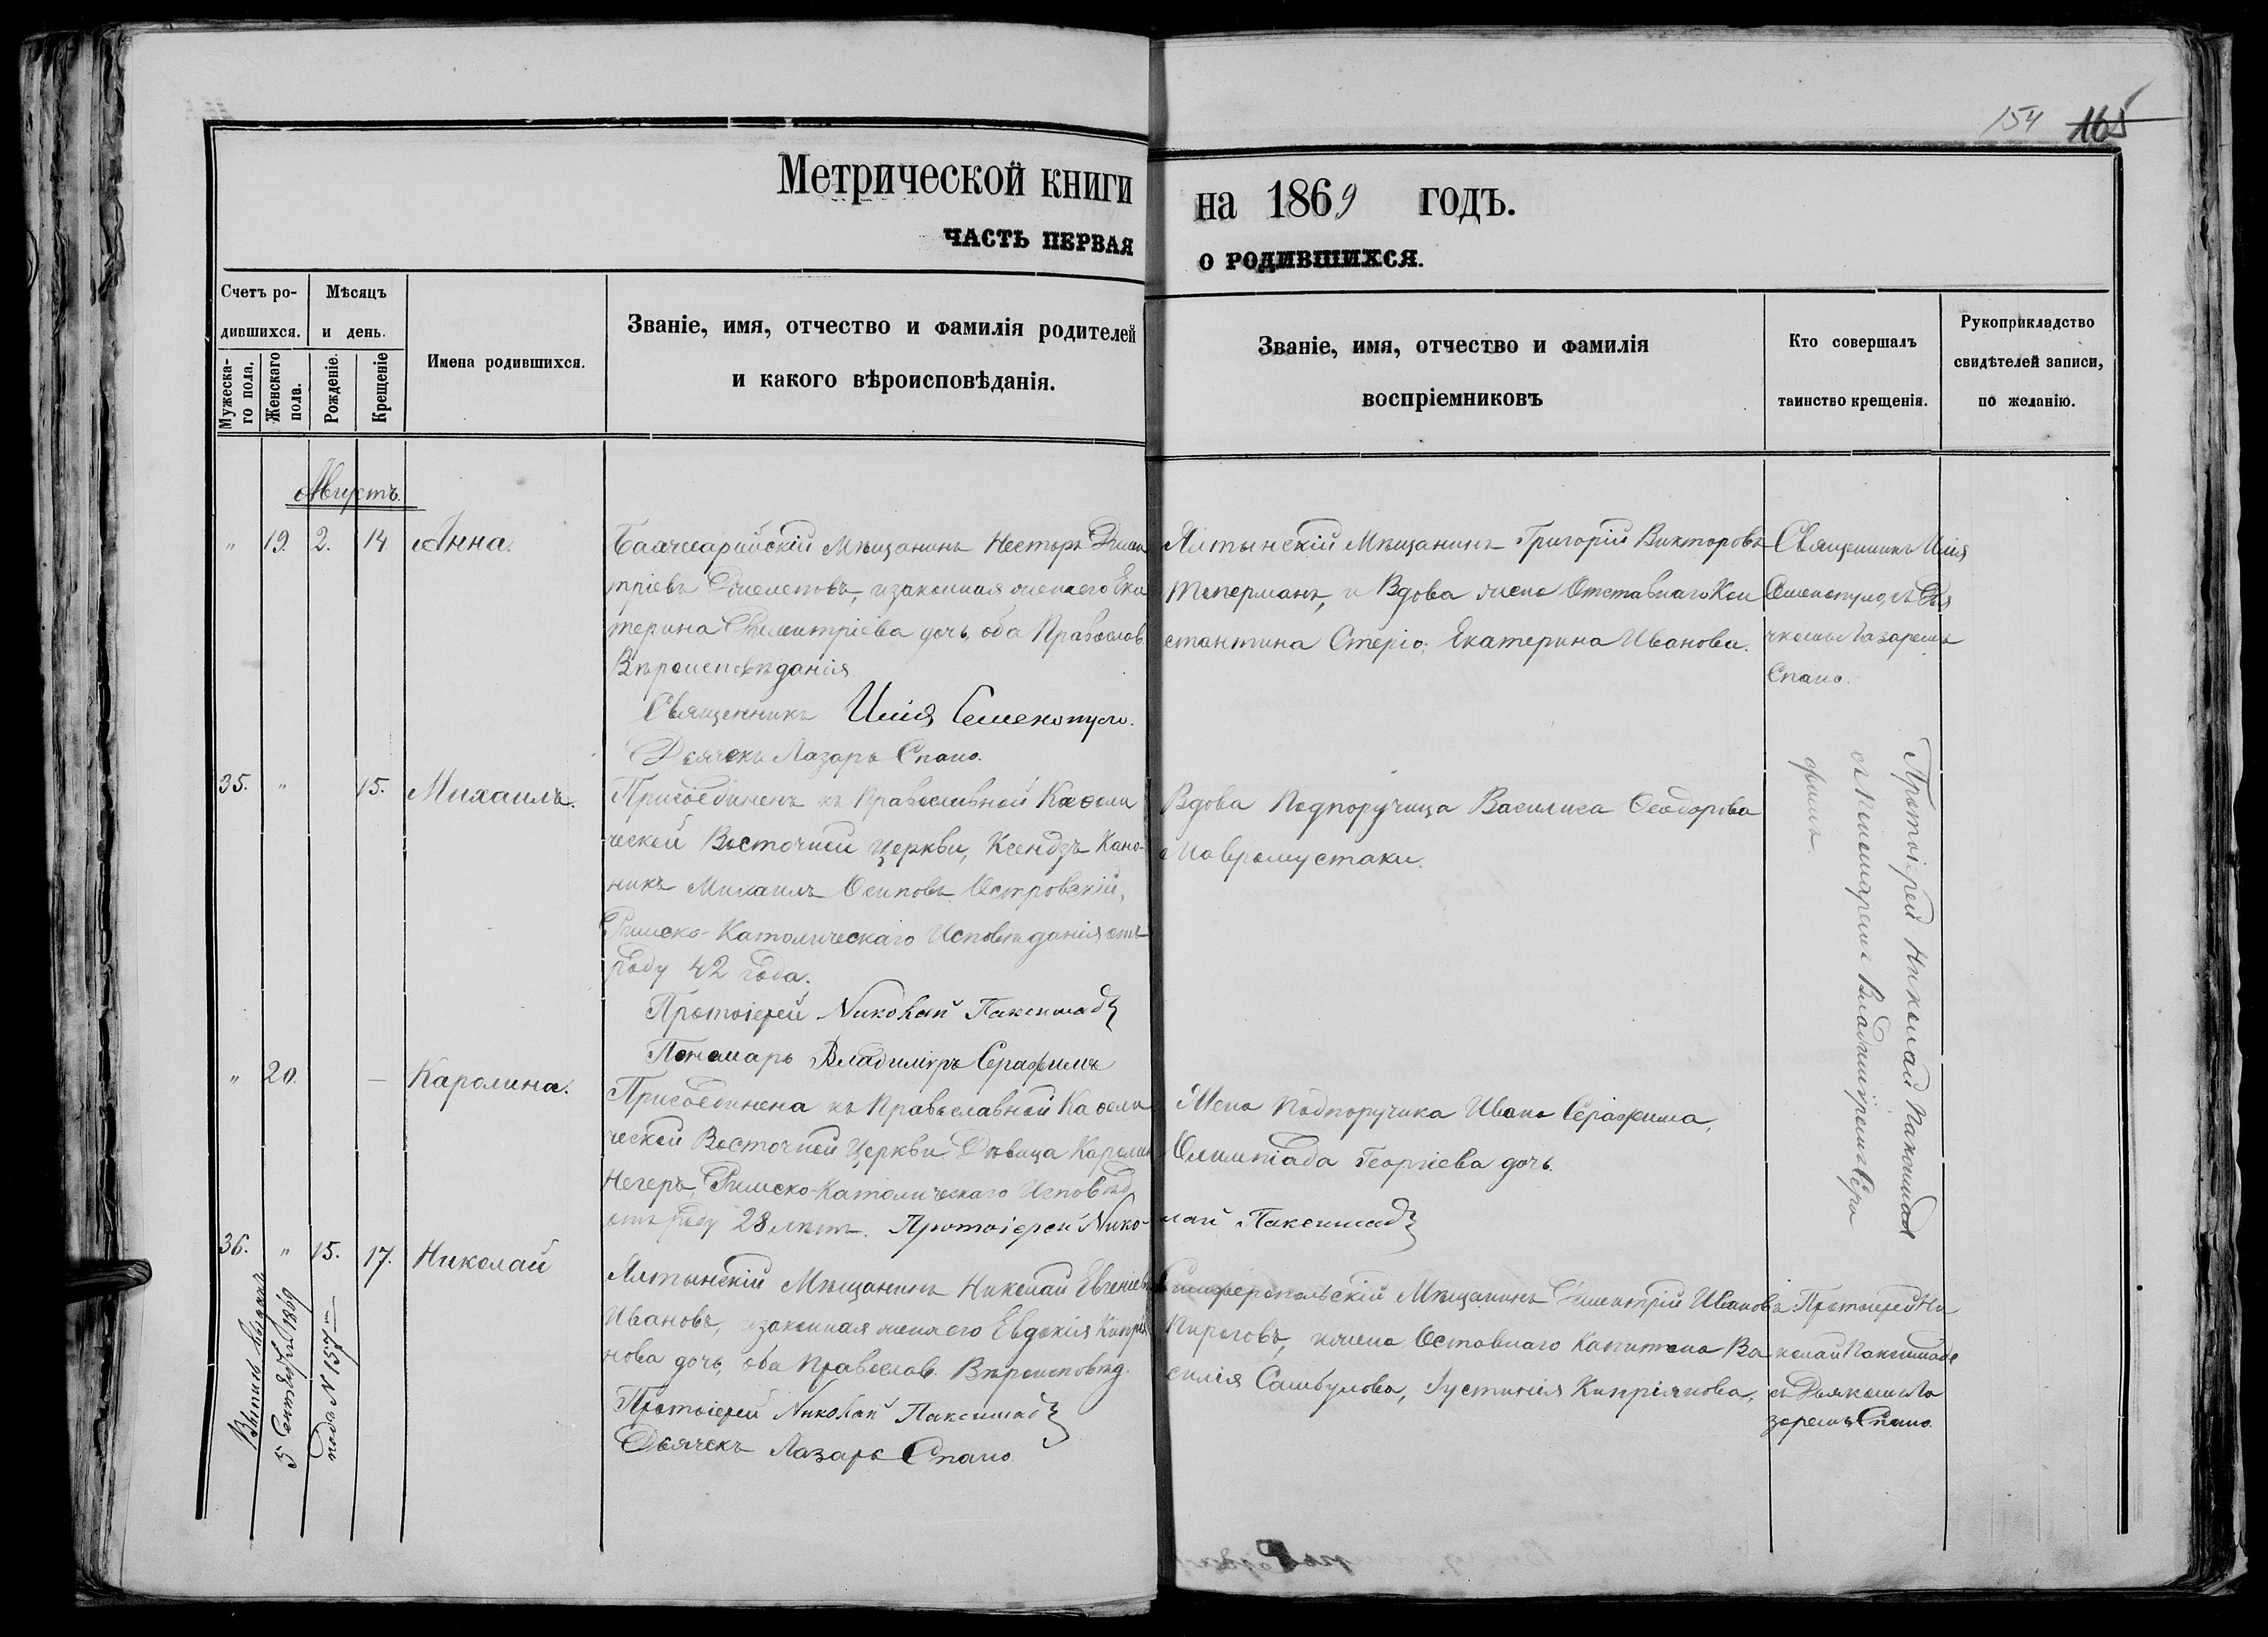 154 165
Метрической книги на 1869 годъ.
часть первая о родившихся.
Счетъ ро-
дившихся.
Мѣсяцъ
и день.
Мужеска-
го пола.
Женскаго
пола.
Рожденіе.
Крещеніе
Имена родившихся.
Званіе, имя, отчество и фамилія родителей
и какого вѣроисповѣданія.
Званіе, имя, отчество и фамилія
воспріемниковъ
Кто совершалъ
таинство крещенія.
Рукоприкладство
свидѣтелей записи,
по желанію.
Августъ.
" 19. 2. 14. Анна.
Мѣщанинъ Несторъ Дими
тріевъ изаконная жена его Ека
терина Димитріева дочь, оба Православ.
Вѣроисповѣданія.
Священникъ Илія Семенопуло.
Дьячекъ Лазарь Спано.
Ялтынскій Мѣщанинъ Григорій Викторовъ
Топерманъ, и Вдова жена Отставнаго Кон
стантина Стеріо, Екатерина Иванова.
Священникъ Илія
Семенопуло, съ Дья
чкомъ Лазаремъ
Спано.
35. " 15. Михаилъ.
Присоединенъ къ Православной Каѳоли
ческой Восточной Церкви, Ксендзъ Кано-
никъ Михаилъ Осиповъ Островскій,
Римско-Католическаго Исповѣданія отъ
роду 42 года.
Протоіерей Николай Паксимад
Пономарь Владиміръ Серафимъ
Вдова Подпоручица Василиса Ѳеодорова
Мавромустаки.
Протоіерей Николай Паксимад
съ Пономаремъ Владиміромъ Сера
фимъ.
" 20. — Каролина.
Присоединена къ Православной Каѳоли
ческой Восточной Церкви Дѣвица Каролин
Негеръ, Римско-Католическаго Исповѣд.
отъ роду 28 лѣтъ. Протоіерей Нико-
лай Паксимад
Жена Подпоручика Ивана Серафима,
Олимпіада Георгіева дочь.
36. " 15. 17. Николай
5 Сентября 1869
подъ N 157
Ялтынскій Мѣщанинъ Николай Евгеніевъ
Ивановъ, изаконная жена его Евдокія Кипрія
нова дочь, оба Православ. Вѣроисповѣд.
Протоіерей Николай Паксимад
Дьячекъ Лазарь Спано
Симферопольскій Мѣщанинъ Димитрій Ивановъ
Пироговъ, и жена Оставнаго Капитана Ва
силія Самбулова, Іустинія Кипріянова,
Протоіерей Ни
колай Паксимаде
съ Дьякомъ Ла
заремъ Спано.